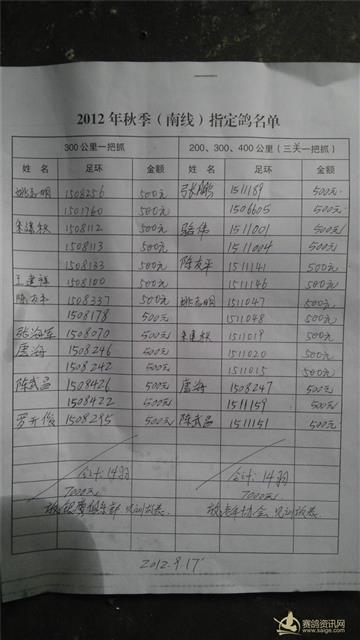 2012年秋季(南线)指定鸽名单
300公里一把抓 200、300、400公里(三关一把抓)
姓名 足环 金额 姓名 足环 金额
姚志明 1508256 500元 张鹏 1511189 500元
1501760 500元 1506605 500元
朱建秋 1508112 500元 骆伟 1511001 500元
1508113 500元 1511004 500元
1508133 500元 陈友平 1511141 500元
王建祥 1508100 500元 1511146 500元
陈友平 1508337 500元 姚志明 1511047 500元
1508178 500元 1511048 500元
张海军 1508070 500元 朱建秋 1511019 500元
唐海 1508246 500元 1511020 500元
1508242 500元 1511015 500元
陈武昌 1508426 500元 唐海 1508247 500元
1508422 500元 1511159 500元
罗开俊 1508295 500元 陈武昌 1511151 500元
合计:14羽 合计:14羽
7000元 7000元
按 俱乐部 见训放表. 按老年协会 见训放表
2012.9.17
赛鸽资讯网
www.saige.com